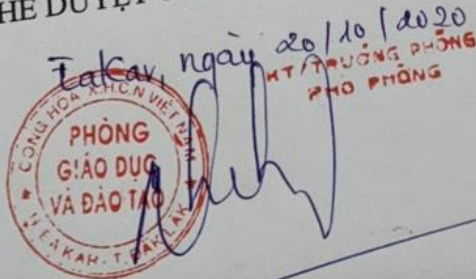 HÊ DUYỆT
EaKar, ngày 20/10/2020
KT/TRƯỞNG PHÒNG
PHÓ PHÒNG
CỘNG HÒA X.H.C.N VIỆT NAM
PHÒNG
GIÁO DỤC
VÀ ĐÀO TẠO
H. EA KAR - T. ĐAK LAK